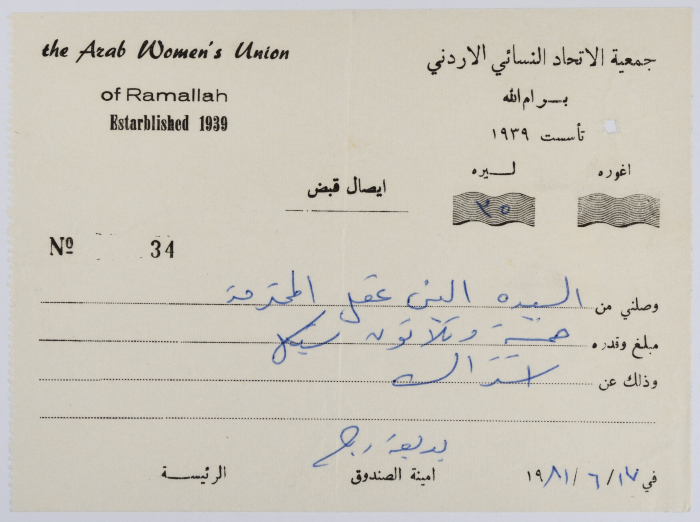 the Arab Women's Union
of Ramallah
Estarblished 1939
جمعية الاتحاد النسائي الاردني
بـرام الله
تأسست ١٩٣٩
اغوره
لـيره
٣٥
ايصال قبض
Nº 34
وصلني من السيده اليس عقل المحترمة
مبلغ وقدره خمسة وثلاثون شيكل
وذلك عن اشتراك
بديعة رباح
في ١٧/٦/١٩٨١
امينة الصندوق
الرئيسـة